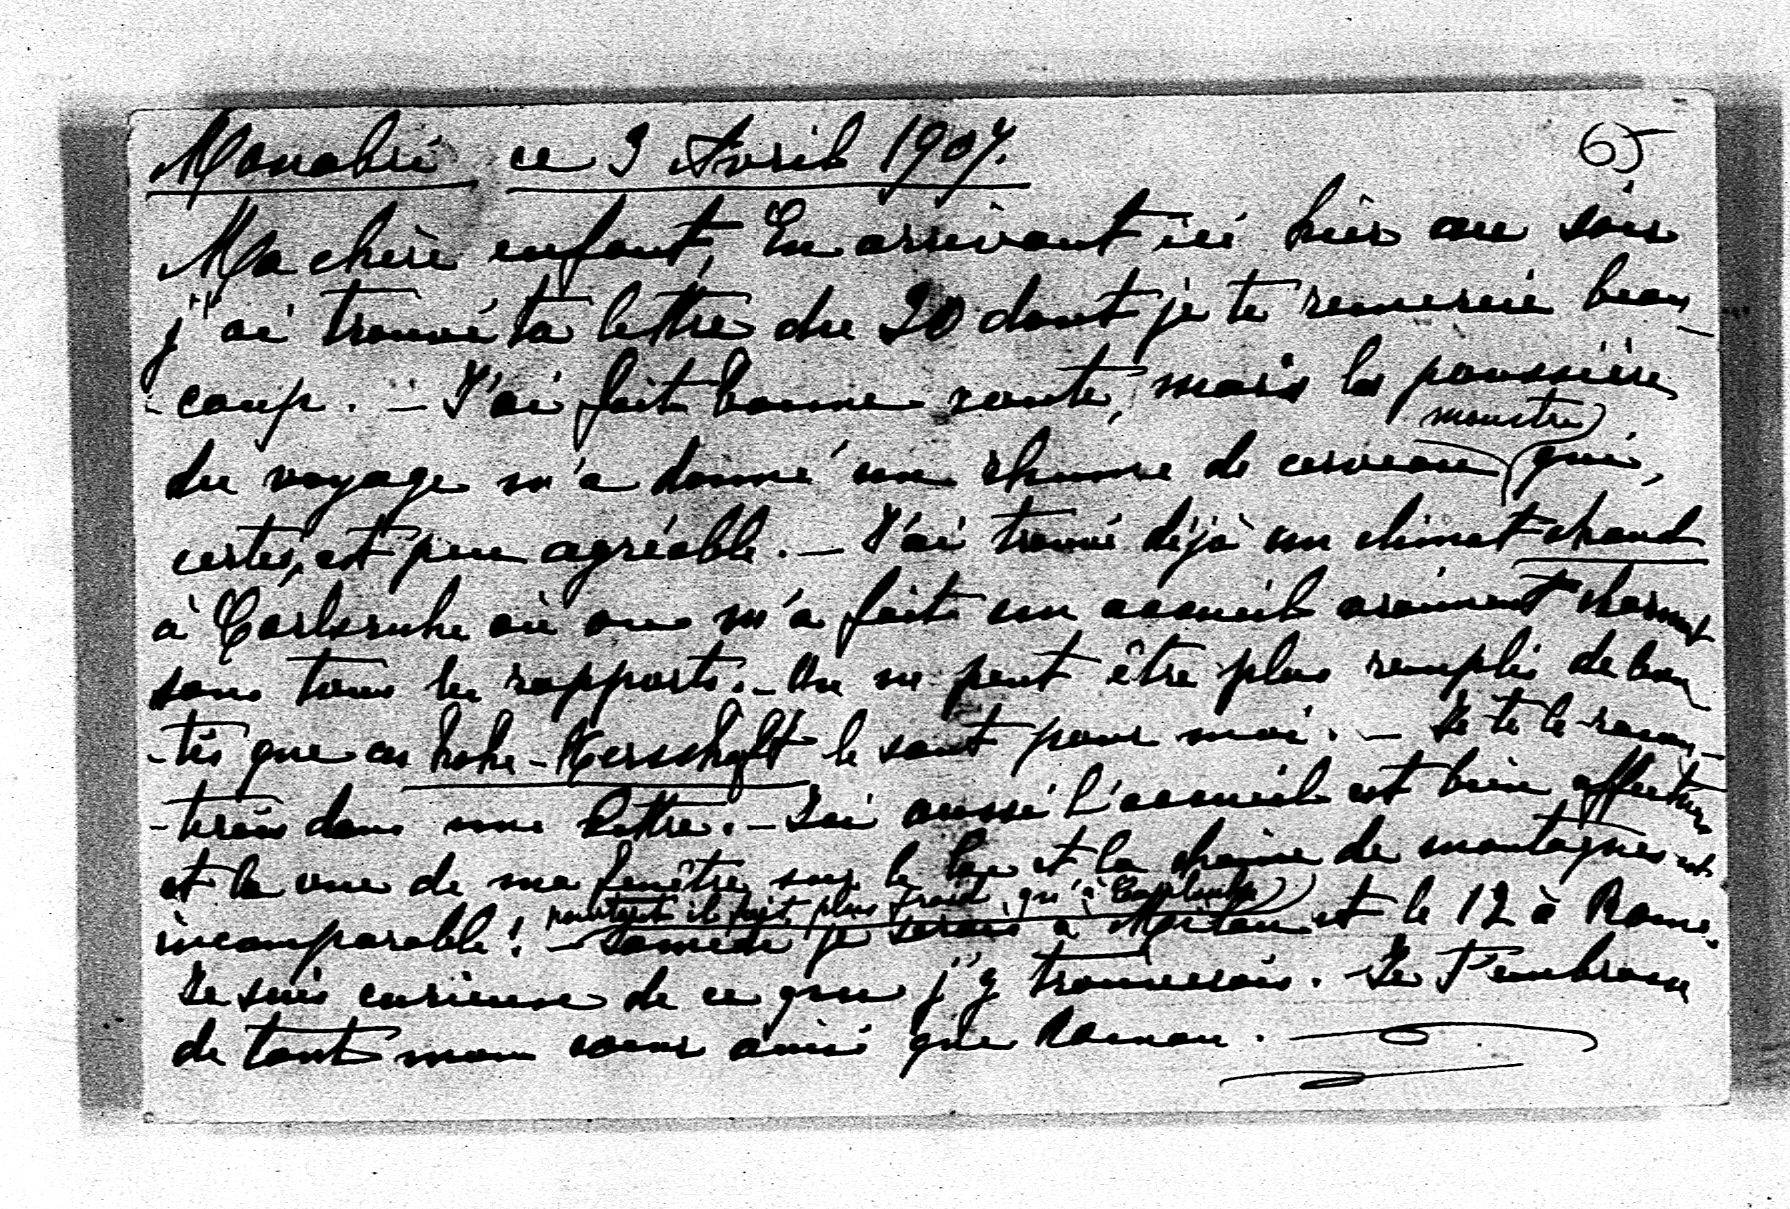 Monabri ce 3 Avril 1907.
65
Ma chère enfant, En arrivant ici hier au soir
j'ai trouvé ta lettre du 20 dont je te remercie beau-
-coup. – J'ai fait bonne route, mais la poussière
monstre
du voyage m'a donné un rhume de cerveau qui,
certes, est peu agréable. – J'ai trouvé déjà un climat chaud
à Carlsruhe où on m'a fait un accueil vraiment charmant
sous tous les rapports. – On ne peut être plus remplis de bon-
-tés que ces hohe-Herrschaft le sont pour moi. – Je te le racon-
-terai dans une lettre. – Ici aussi l'accueil est bien affectueux
et la vue de ma fenêtre sur le lac et la chaine de montagnes est
pourtant il fait plus froid qu'à Carlsruhe
incomparable! – Samedi je serai à Milan et le 12 à Rome.
Je suis curieuse de ce que j'y trouverai. Je t'embrasse
de tout mon coeur ainsi que